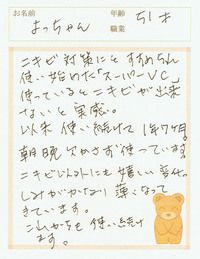 お名前 よっちゃん 年齢 51才
職業
ニキビ対策にと すすめられ
使い始めた「スーパーVC」
使っているとニキビが出来
ないと実感。
以来 使い続けて 1年7ヶ月。
朝晩 欠かさず 使っています。
ニキビ以外にも嬉しい変化。
しみがかなり 薄くなって
きています。
これからも 使い続け
ます。